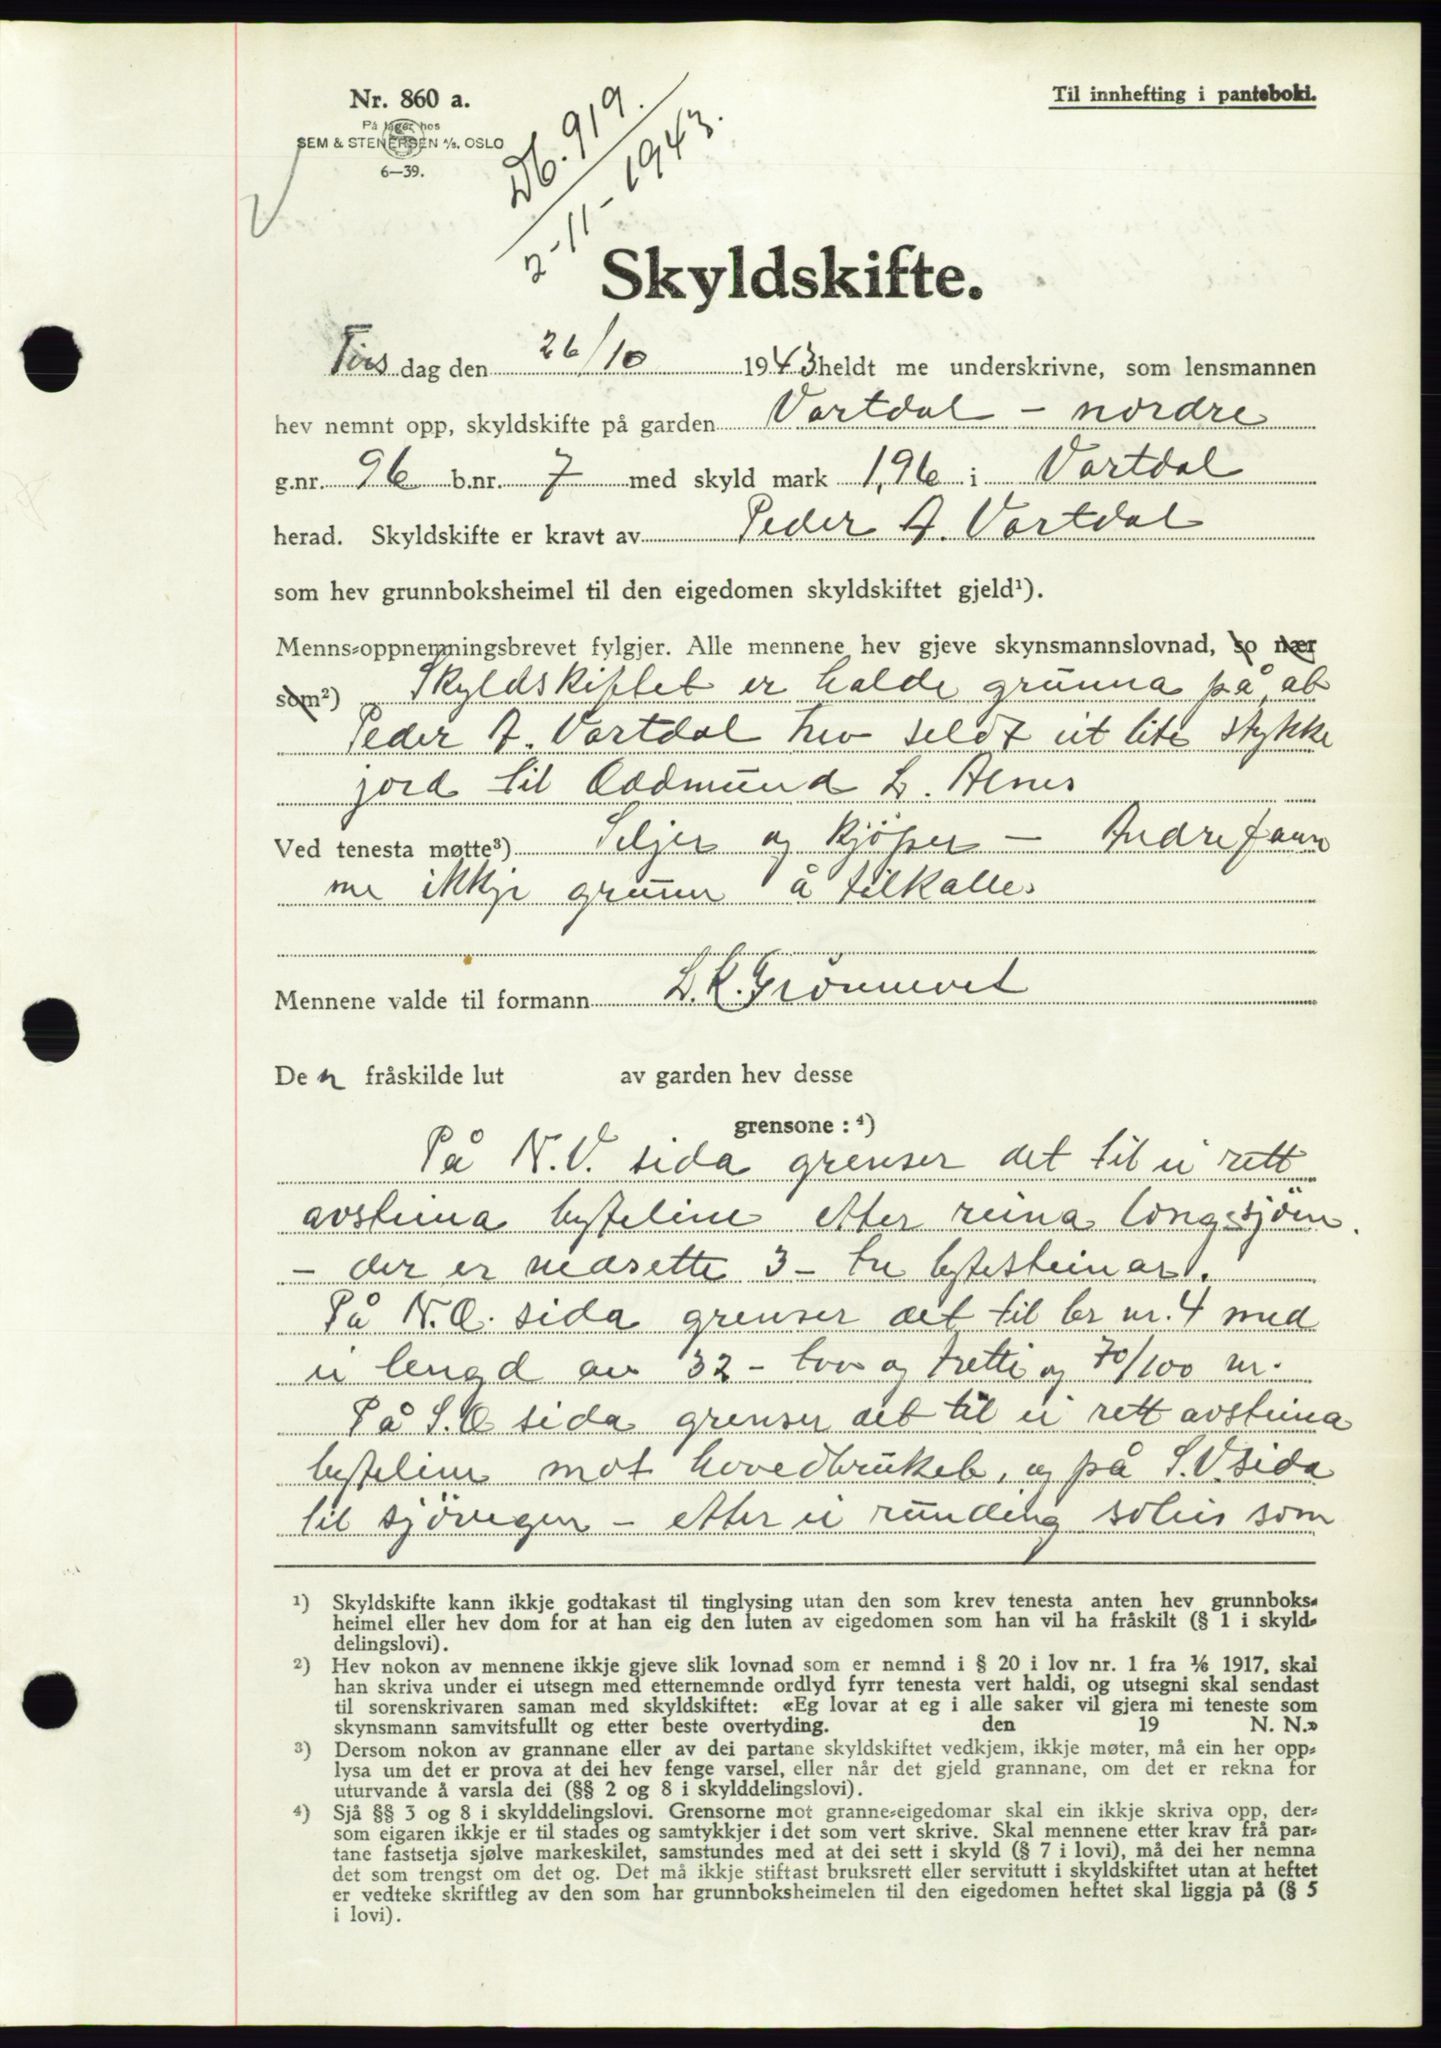 Nr. 860 a.
På lager hos
SEM & STENERSEN A/S. OSLO
6—39.
Til innhefting i panteboki.
Db. 919.
2-11-1943.
Skyldskifte.
Tirs dag den 26/10 1943 heldt me underskrivne, som lensmannen
hev nemnt opp, skyldskifte på garden Vartdal - nordre
g.nr. 96 b.nr. 7 med skyld mark 1,96 i Vartdal
herad. Skyldskifte er kravt av Peder A. Vartdal
som hev grunnboksheimel til den eigedomen skyldskiftet gjeld¹).
Menns-oppnemningsbrevet fylgjer. Alle mennene hev gjeve skynsmannslovnad, so nær
som²) Skyldskiftet er halde grunna på at
Peder A. Vartdal hev seldt eit lite stykke
jord til Oddmund L. Alnes
Ved tenesta møtte³) Seljer og kjöper - Andre fann
me ikkje grunn å tilkalle.
Mennene valde til formann L. K. Grönnevet
De n fråskilde lut av garden hev desse
grensone : ⁴)
På N.V. sida grenser det til ei rett
avsteina byteline etter reina langs sjöen.
- der er nedsette 3 - tre bytesteinar.
På N.O. sida grenser det til br nr. 4 med
ei lengd av 32 - tvo og tretti og 70/100 m.
På S.O sida grenser det til ei rett avsteina
byteline mot hovedbruket, og på S.V. sida
til sjövegen - etter ei runding soleis som
¹) Skyldskifte kann ikkje godtakast til tinglysing utan den som krev tenesta anten hev grunnboks-
heimel eller hev dom for at han eig den luten av eigedomen som han vil ha fråskilt (§ 1 i skyld-
delingslovi).
²) Hev nokon av mennene ikkje gjeve slik lovnad som er nemnd i § 20 i lov nr. 1 fra 1/6 1917, skal
han skriva under ei utsegn med etternemnde ordlyd fyrr tenesta vert haldi, og utsegni skal sendast
til sorenskrivaren saman med skyldskiftet: «Eg lovar at eg i alle saker vil gjera mi teneste som
skynsmann samvitsfullt og etter beste overtyding. den 19 N. N.»
³) Dersom nokon av grannane eller av dei partane skyldskiftet vedkjem, ikkje møter, må ein her opp-
lysa um det er prova at dei hev fenge varsel, eller når det gjeld grannane, om det er rekna for
uturvande å varsla dei (§§ 2 og 8 i skylddelingslovi).
⁴) Sjå §§ 3 og 8 i skylddelingslovi. Grensorne mot granne-eigedomar skal ein ikkje skriva opp, der-
som eigaren ikkje er til stades og samtykkjer i det som vert skrive. Skal mennene etter krav frå par-
tane fastsetja sjølve markeskilet, samstundes med at dei sett i skyld (§ 7 i lovi), må dei her nemna
det som trengst om det og. Det må ikkje stiftast bruksrett eller servitutt i skyldskiftet utan at heftet
er vedteke skriftleg av den som har grunnboksheimelen til den eigedomen heftet skal liggja på (§ 5
i lovi).